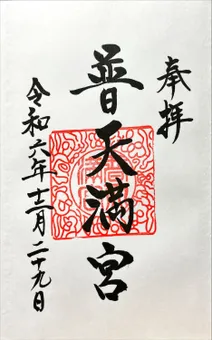 奉拝
普天満宮
令和六年十二月二十九日